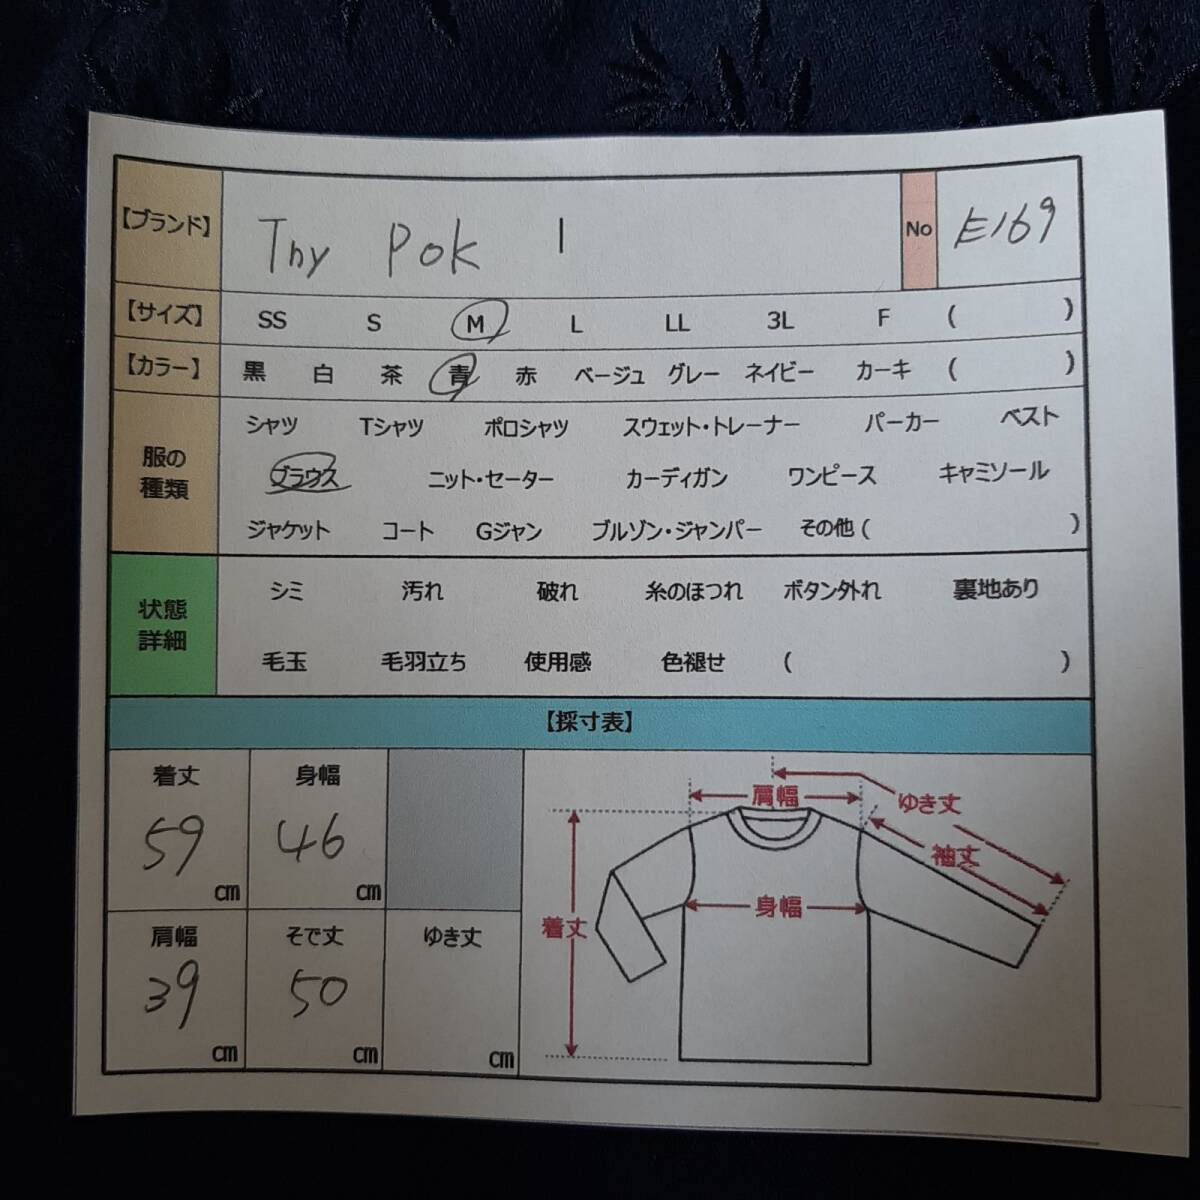 【ブランド】 Thy Pok | No E169
【サイズ】 SS S M L LL 3L F ( )
【カラー】 黒 白 茶 青 赤 ベージュ グレー ネイビー カーキ ( )
服の種類
シャツ Tシャツ ポロシャツ スウェット・トレーナー パーカー ベスト
ブラウス ニット・セーター カーディガン ワンピース キャミソール
ジャケット コート Gジャン ブルゾン・ジャンパー その他 ( )
状態詳細
シミ 汚れ 破れ 糸のほつれ ボタン外れ 裏地あり
毛玉 毛羽立ち 使用感 色褪せ ( )
【採寸表】
着丈 身幅
59 cm 46 cm
肩幅 そで丈 ゆき丈
39 cm 50 cm cm
肩幅
ゆき丈
袖丈
身幅
着丈